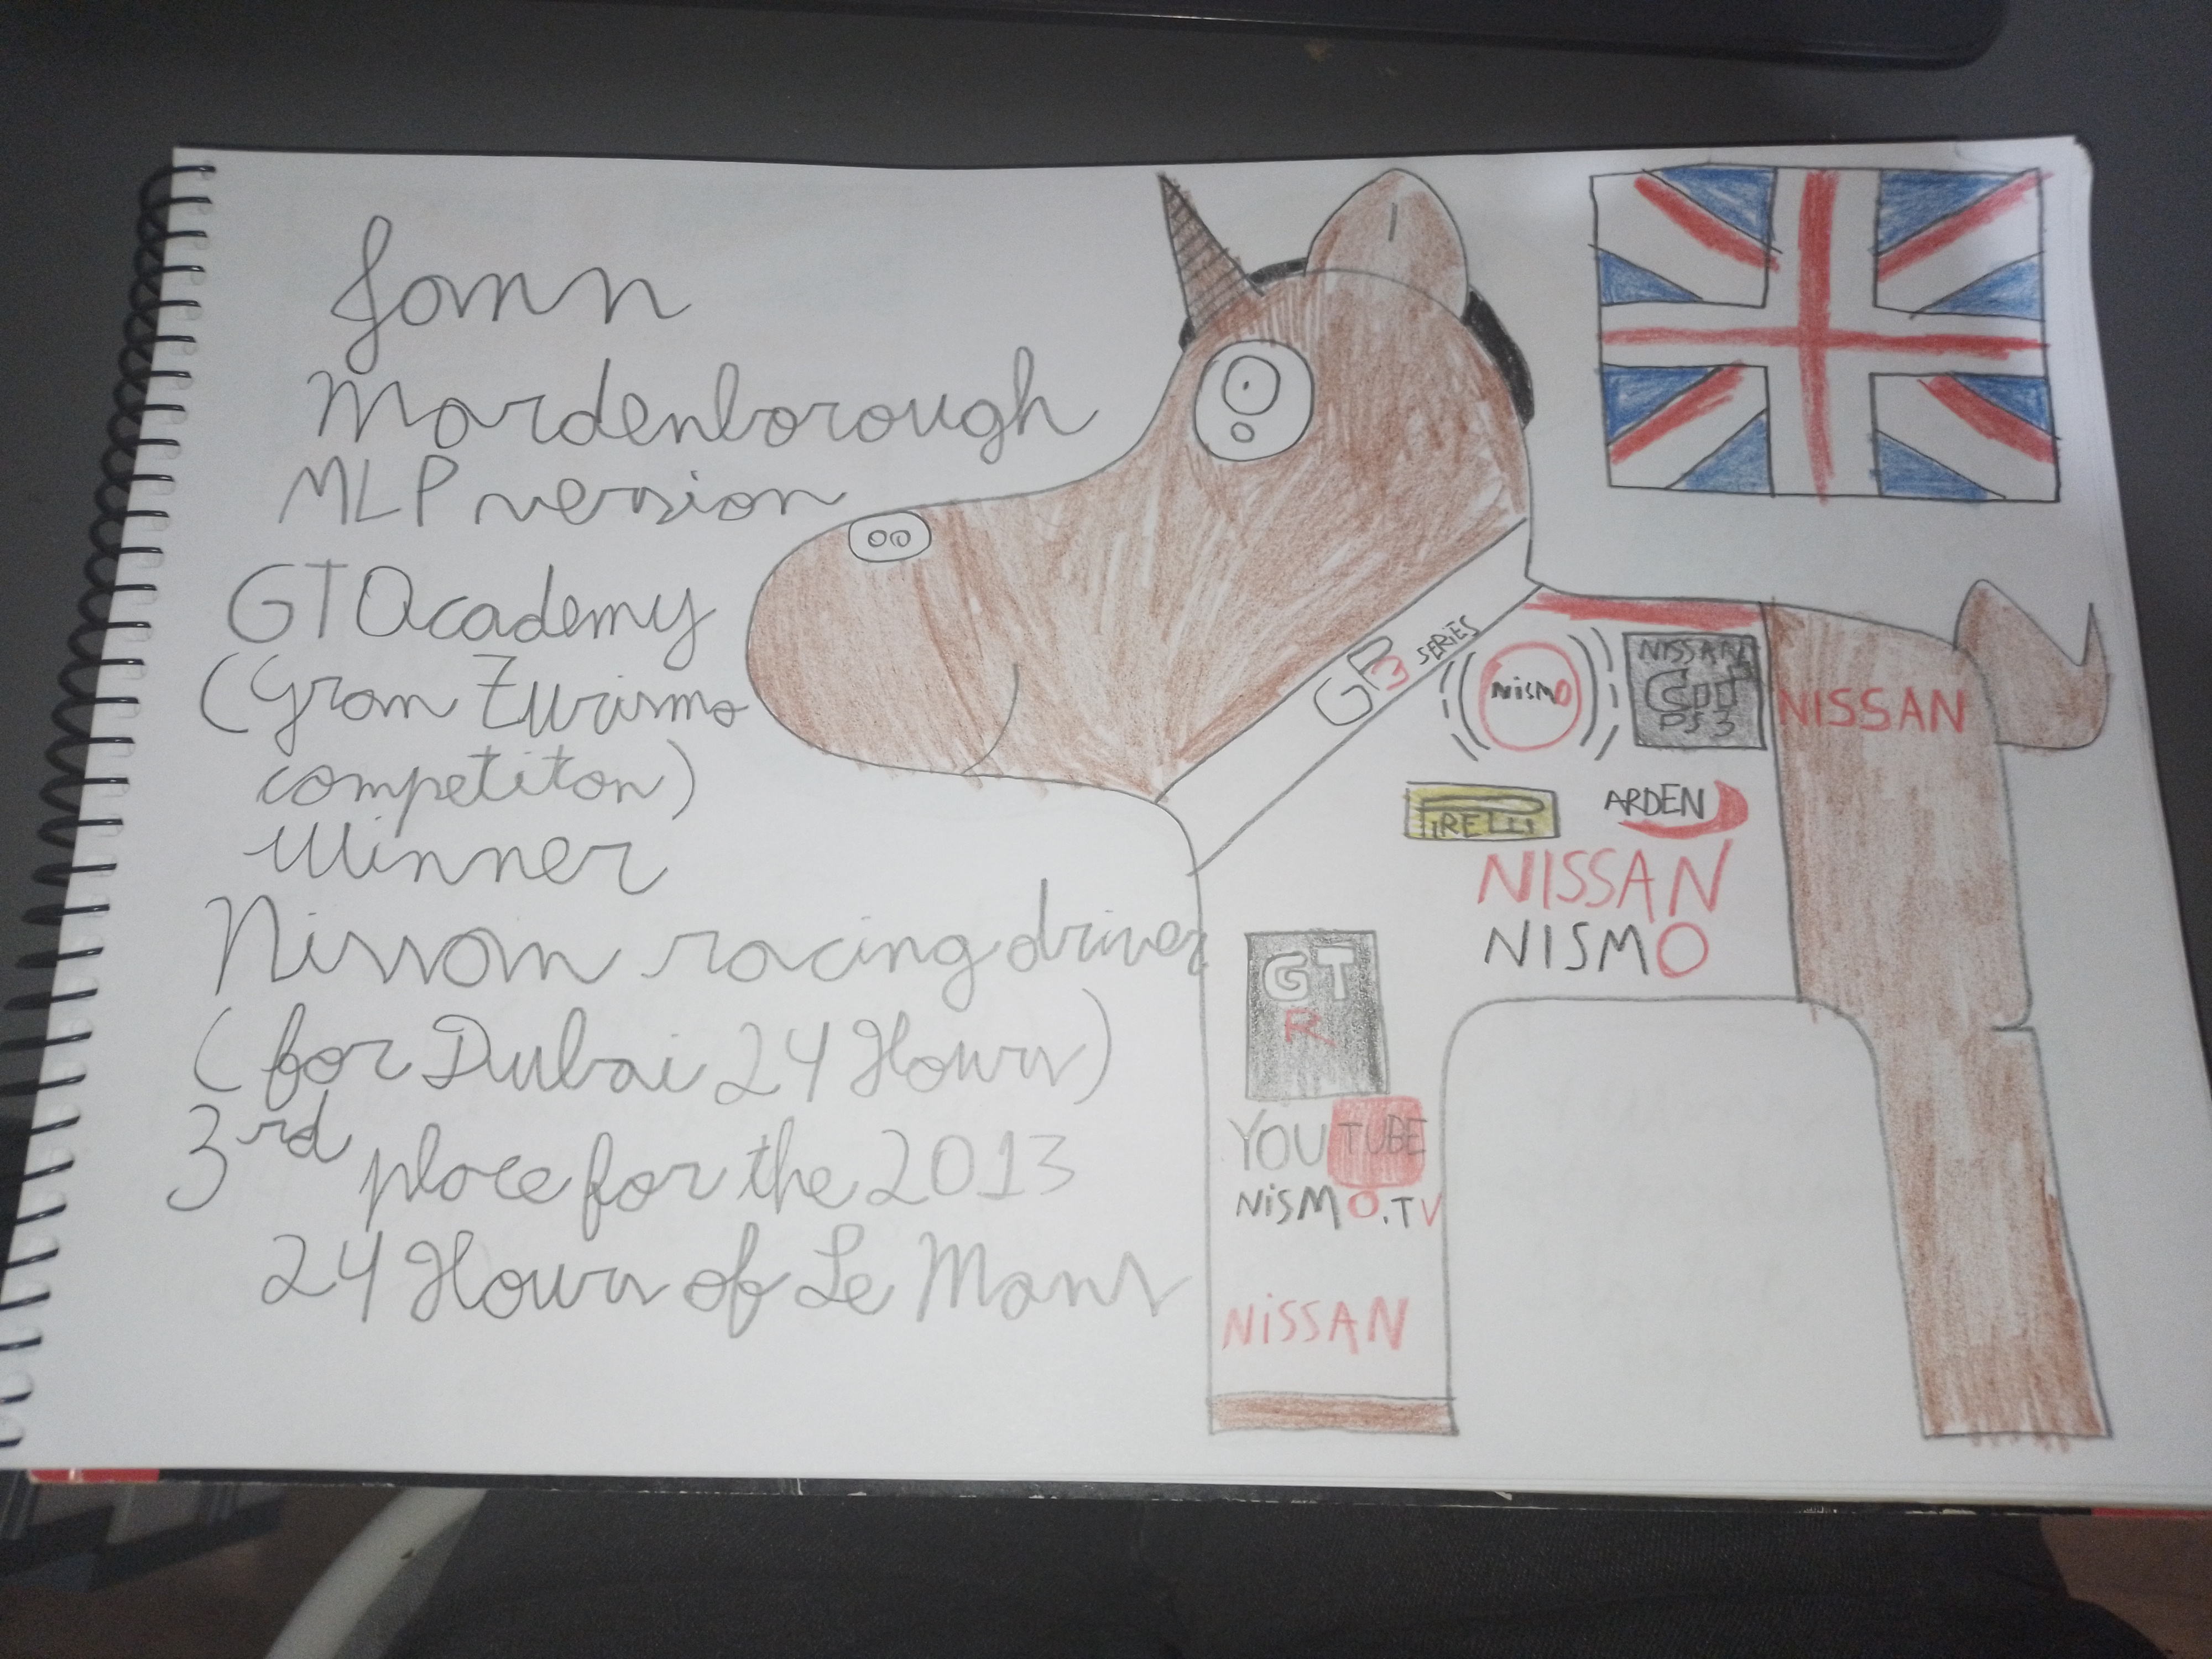 Jann
Mardenborough
MLP version
GT Academy
(Gran Turismo
competiton)
Winner
Nissan racing driver
(for Dubai 24 Hours)
3rd place for the 2013
24 Hours of Le Mans
GP3 SERIES
NISMO
NISSAN
PS3
NISSAN
PIRELLI
ARDEN
NISSAN
NISMO
GT
R
YOUTUBE
NISMO.TV
NISSAN